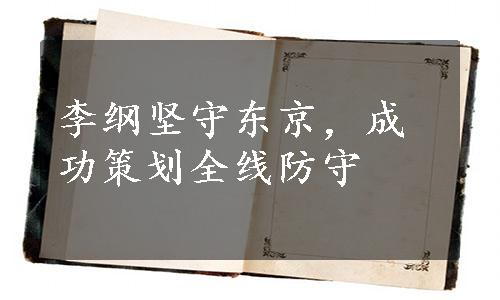 李纲坚守东京，成
功策划全线防守